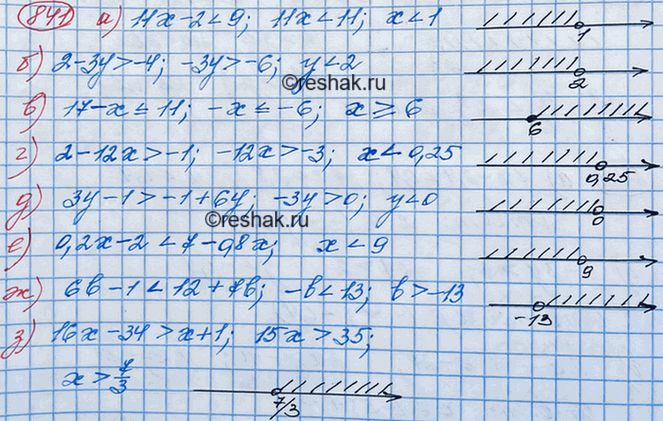 841 а) 11x-2<9; 11x<11; x<1
1
б) 2-3y>-4; -3y>-6; y<2
2
©reshak.ru
в) 17-x≤11; -x≤-6; x≥6
6
г) 2-12x>-1; -12x>-3; x<0,25
0,25
д) 3y-1>-1+6y; -3y>0; y<0
0
©reshak.ru
е) 0,2x-2<7-0,8x; x<9
9
ж) 6b-1<12+7b; -b<13; b>-13
-13
з) 16x-34>x+1; 15x>35;
x>7/3
7/3